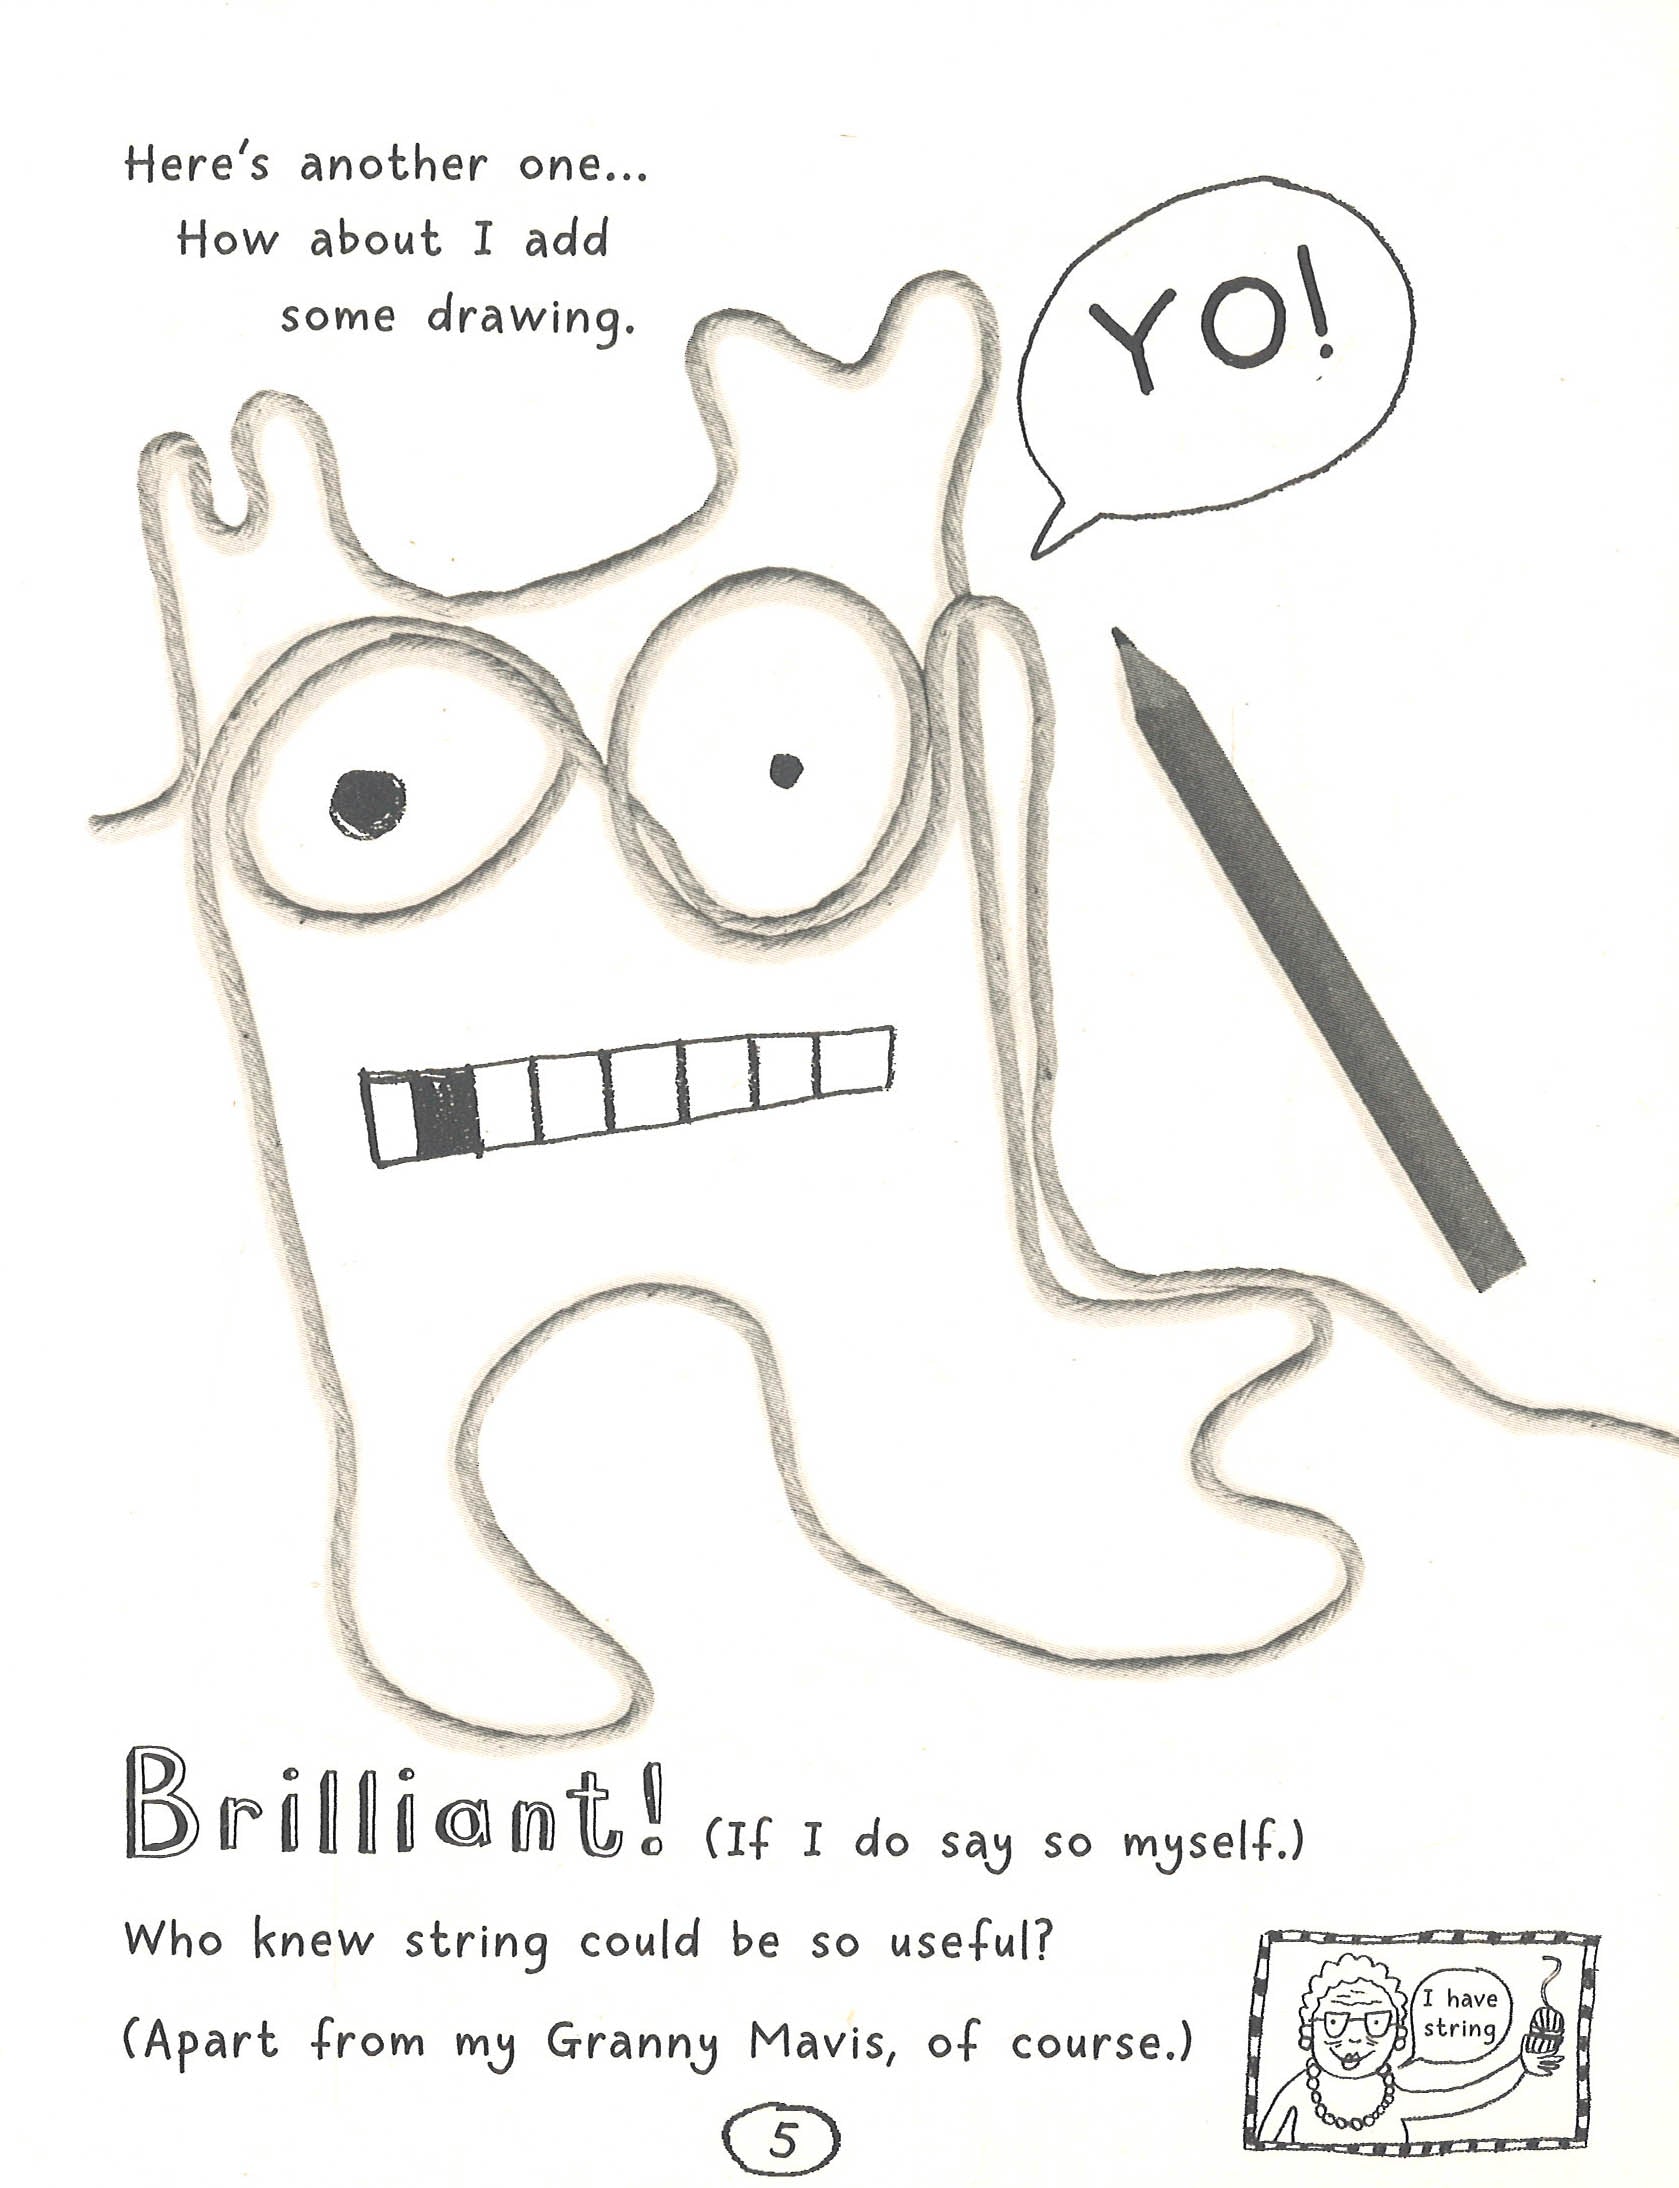 Here's another one...
How about I add
some drawing.
YO!
Brilliant! (If I do say so myself.)
Who knew string could be so useful?
(Apart from my Granny Mavis, of course.)
I have
string
5